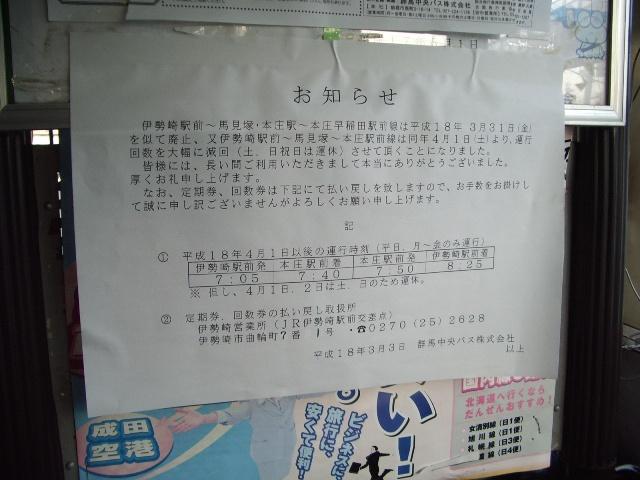 群馬中央バス株式会社
月1日
お知らせ
伊勢崎駅前～馬見塚・本庄駅～本庄早稲田駅前線は平成18年 3月31日(金)
を似て廃止、又伊勢崎駅前～馬見塚～本庄駅前線は同年4月1日(土)より、運行
回数を大幅に減回（土、日祝日は運休）させて頂くことになりました。
皆様には、長い間ご利用いただきまして本当にありがとうございました。
厚くお礼申し上げます。
なお、定期券、回数券は下記にて払い戻しを致しますので、お手数をお掛けし
て誠に申し訳ございませんがよろしくお願い申し上げます。
記
① 平成18年4月1日以後の運行時刻（平日、月～金のみ運行）
伊勢崎駅前発 本庄駅前着 本庄駅前発 伊勢崎駅前着
7:05 7:40 7:50 8:25
※ 但し、4月1日、2日は土、日のため運休。
② 定期券、回数券の払い戻し取扱所
伊勢崎営業所（JR伊勢崎駅前交差点）
伊勢崎市曲輪町7番 1号 ・☎0270(25)2628
平成18年3月3日 群馬中央バス株式会社
以上
成田
空港
ビジネスに、
旅行に、
安くて便利!
い!
北海道へ行くなら
だんぜんおすすめ!
・女満別線(日1便)
・旭川線(日1便)
・札幌線(日3便)
線(日4便)